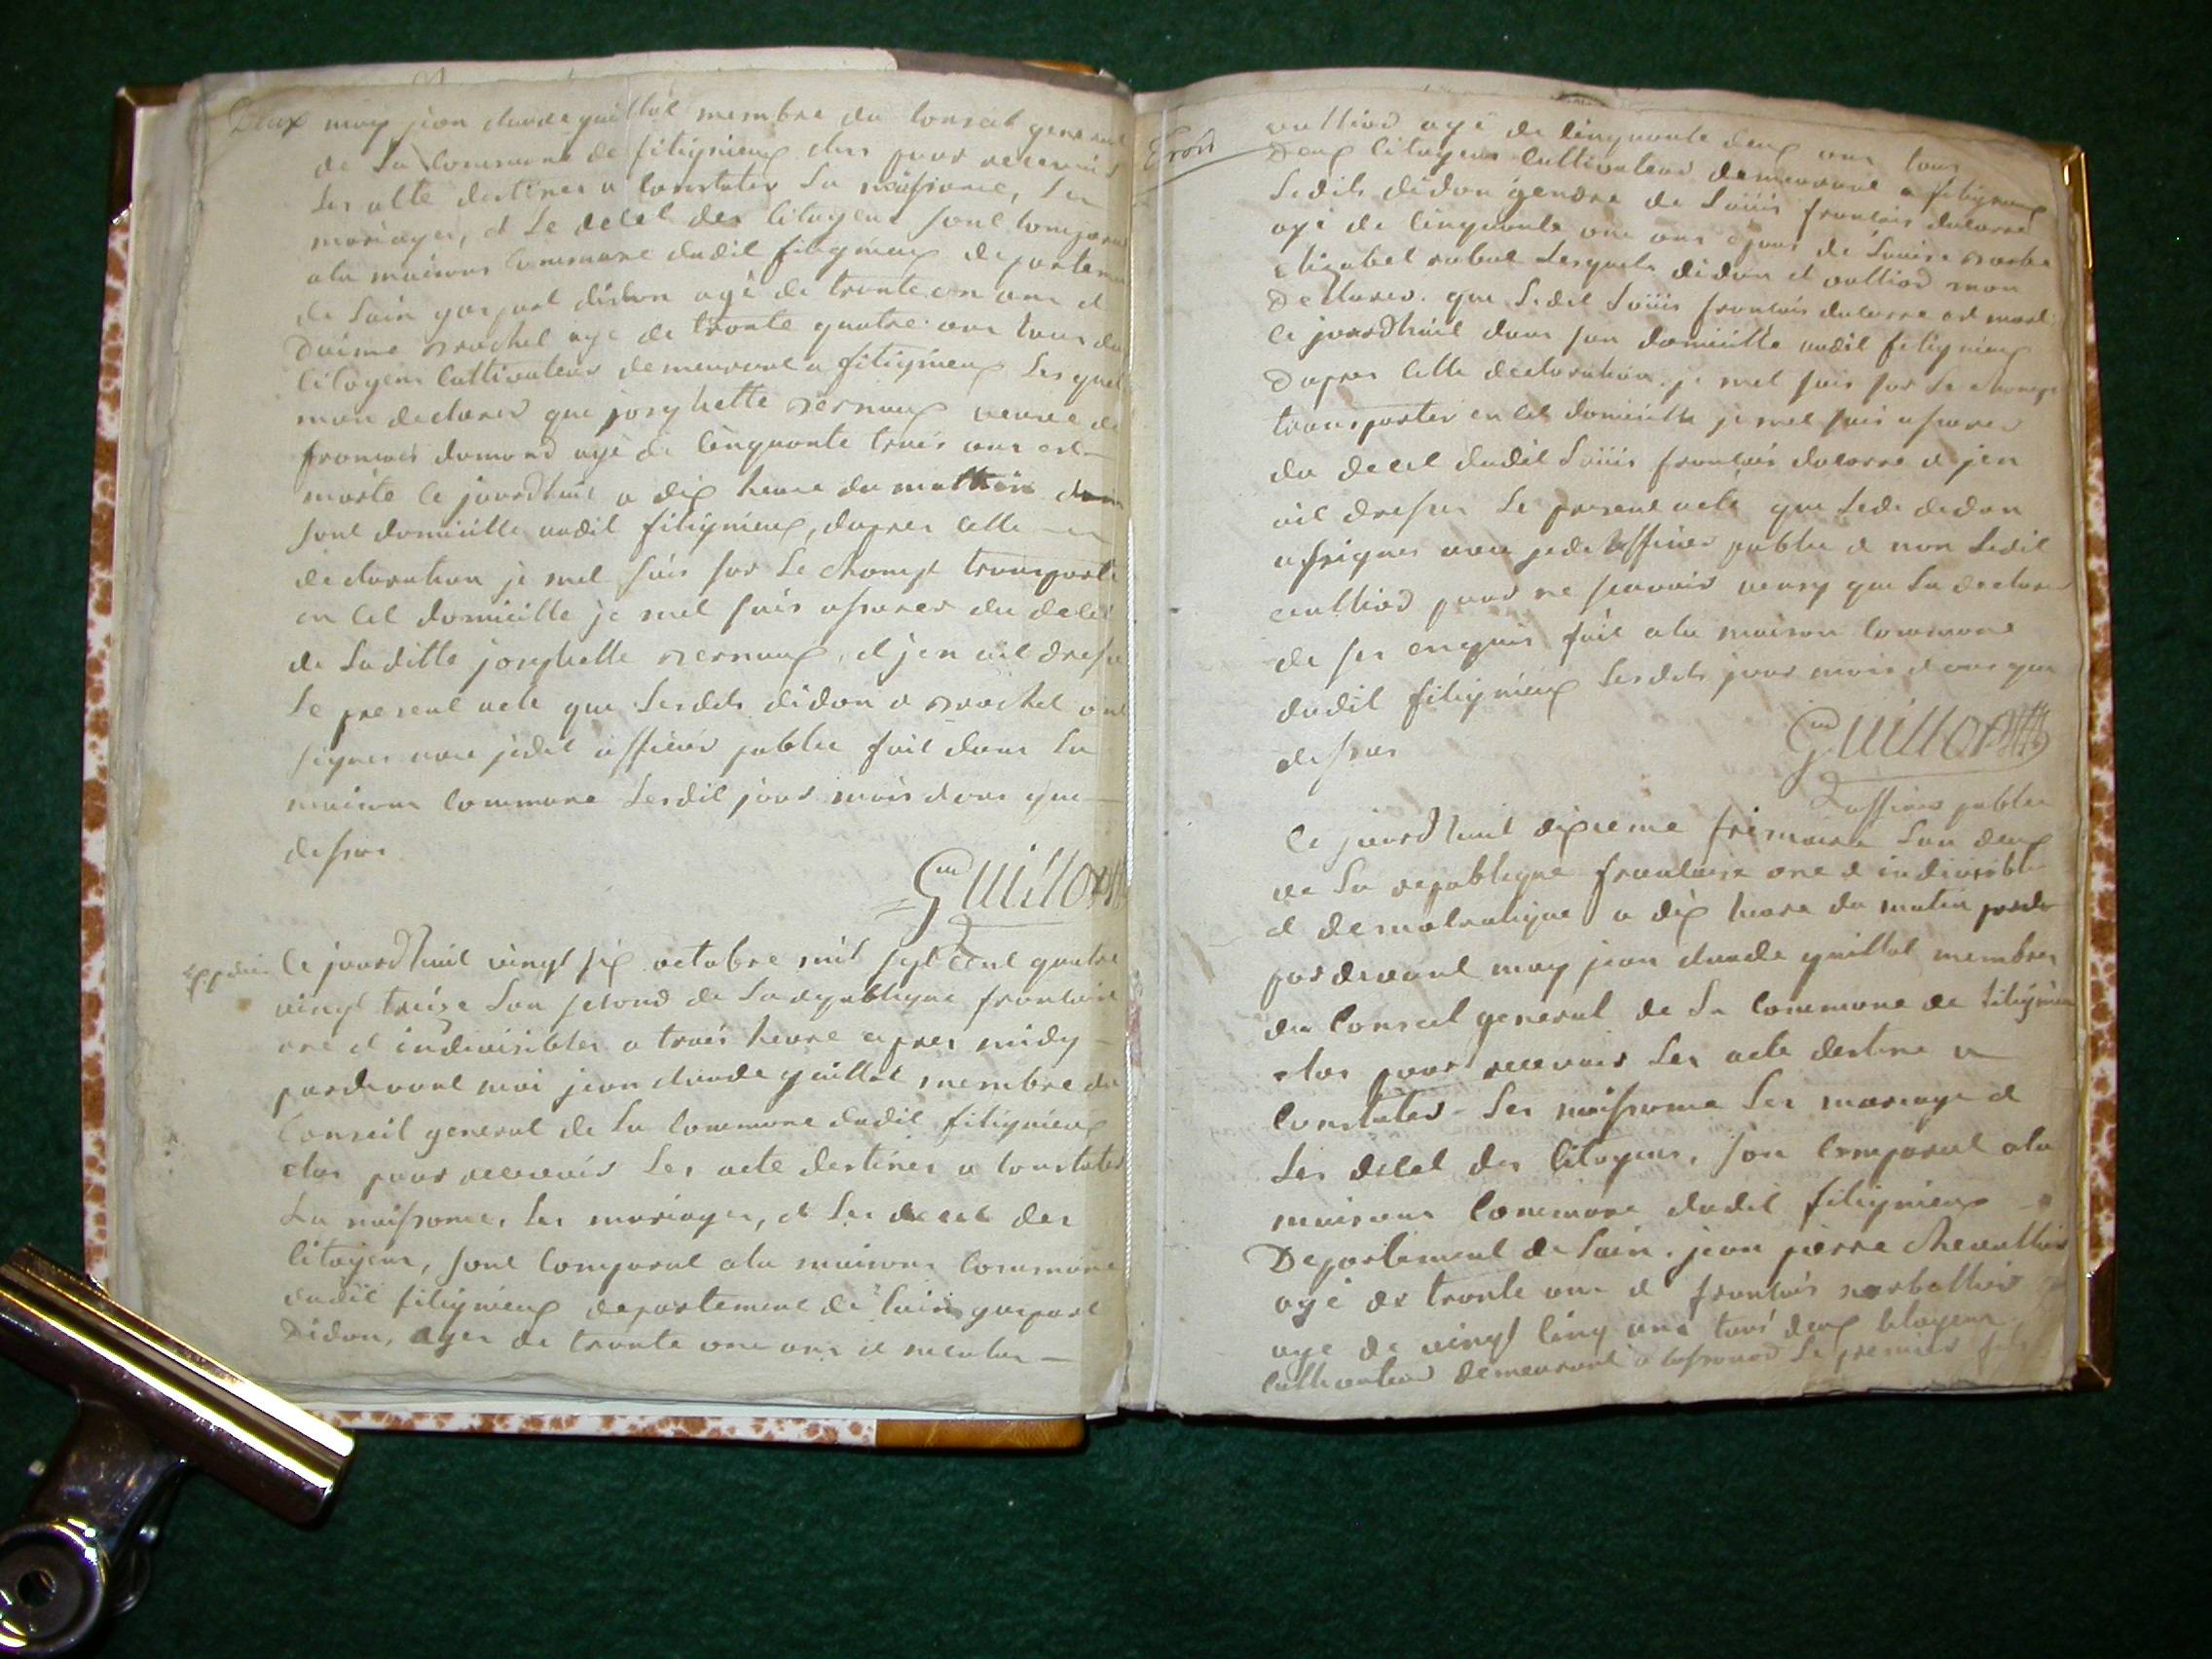 Deux
moy jean claude guillot membre du conseil general
de La Commune de fitignieux elus pour recevoir
Les acte destines a Constater La naissance, Les
mariages, et Le decet des Citoyens sont comparu
ala maisons Commune dudit fitignieux departement
de Lain gaspart didon agé de trante un ans et
agé de trante quatre ans tous deux
Citoyens Cultivateur demeurant a fitignieux Les quels
mon declarer que josephette vernaux veuve de
francois dumond agé de Cinquante trois ans est
morte Ce jourdhuit a dix heure du mattin dans
sont domicille audit fitignieux, dapres Cette
declaration je met suis sur Le champt transporté
en Cet domicille je met suis assurer du decet
de Laditte josephette vernaux, et jen ait dressé
Le present acte que Lesdits didon et ont
signer avec jedit officier public fait dans La
maisons Commune Lesdit jour mois et ans que
dessus
Guillot
Ce jourdhuit vingt six octobre mil sept cent quatre
vingt treize Lan second de La republique francaise
une et indivisibles a trois heure apres midy
pardevant moi jean claude guillot membre du
Conseil general de La Commune dudit fitignieux
elus pour recevoir Les acte destines a Constater
La naissance, Les mariages, et Les decet des
Citoyens, sont Comparut ala maisons Commune
dudit fitignieux departement de Lain gaspart
Didon, ages de trante une ans et
Trois
agé de Cinquante deux ans tous
Deux Citoyens Cultivateur demeurant a fitignieux
Ledit didon gendre de Louis francois
agé de Cinquante ans epoux de
Elizabet Lesquels didon et mon
Declarer que Ledit Louis francois est mort
Ce jourdhuit dans son domicille audit fitignieux
Dapres Cette declaration je met suis sur Le champt
transporter en Cet domicille je met suis assurer
du decet dudit Louis francois et jen
ait dresser Le present acte que Ledi didon
a signer avec jedit officier public et non Ledit
pour ne scavoir que La declarer
de ses enquis fait ala maison Commune
dudit fitignieux Lesdits jour mois et ans que
dessus
Guillot
officier public
Ce jourdhuit dixieme frimaire Lan deux
de La republique francaise une et indivisible
et democratique a dix heure du matin
pardevant moy jean claude guillot membres
du Conseil general de La Commune de fitignieux
elus pour recevoir Les acte destine a
Constater Les naissance Les mariage et
Les decet des Citoyens, son Comparut ala
maisons Commune dudit fitignieux
Departement de Lain jean pierre
agé de trante ans et francois
age de vingt Cinq ans tous deux Citoyens
Cultivateur demeurant a Le premier